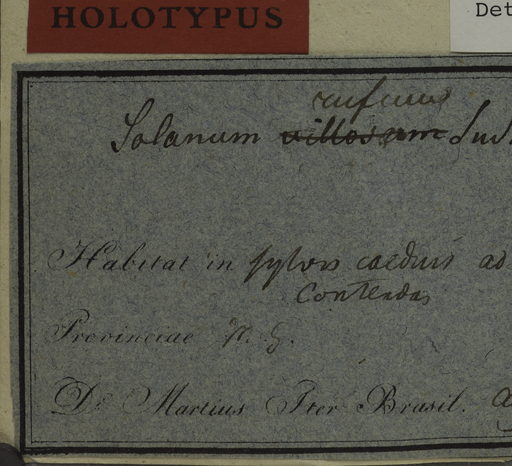 HOLOTYPUS
Det
rufum
Solanum villosum
Habitat in sylvis caeduis ad
Contendas
Provinciae
Dr Martius Iter Brasil.